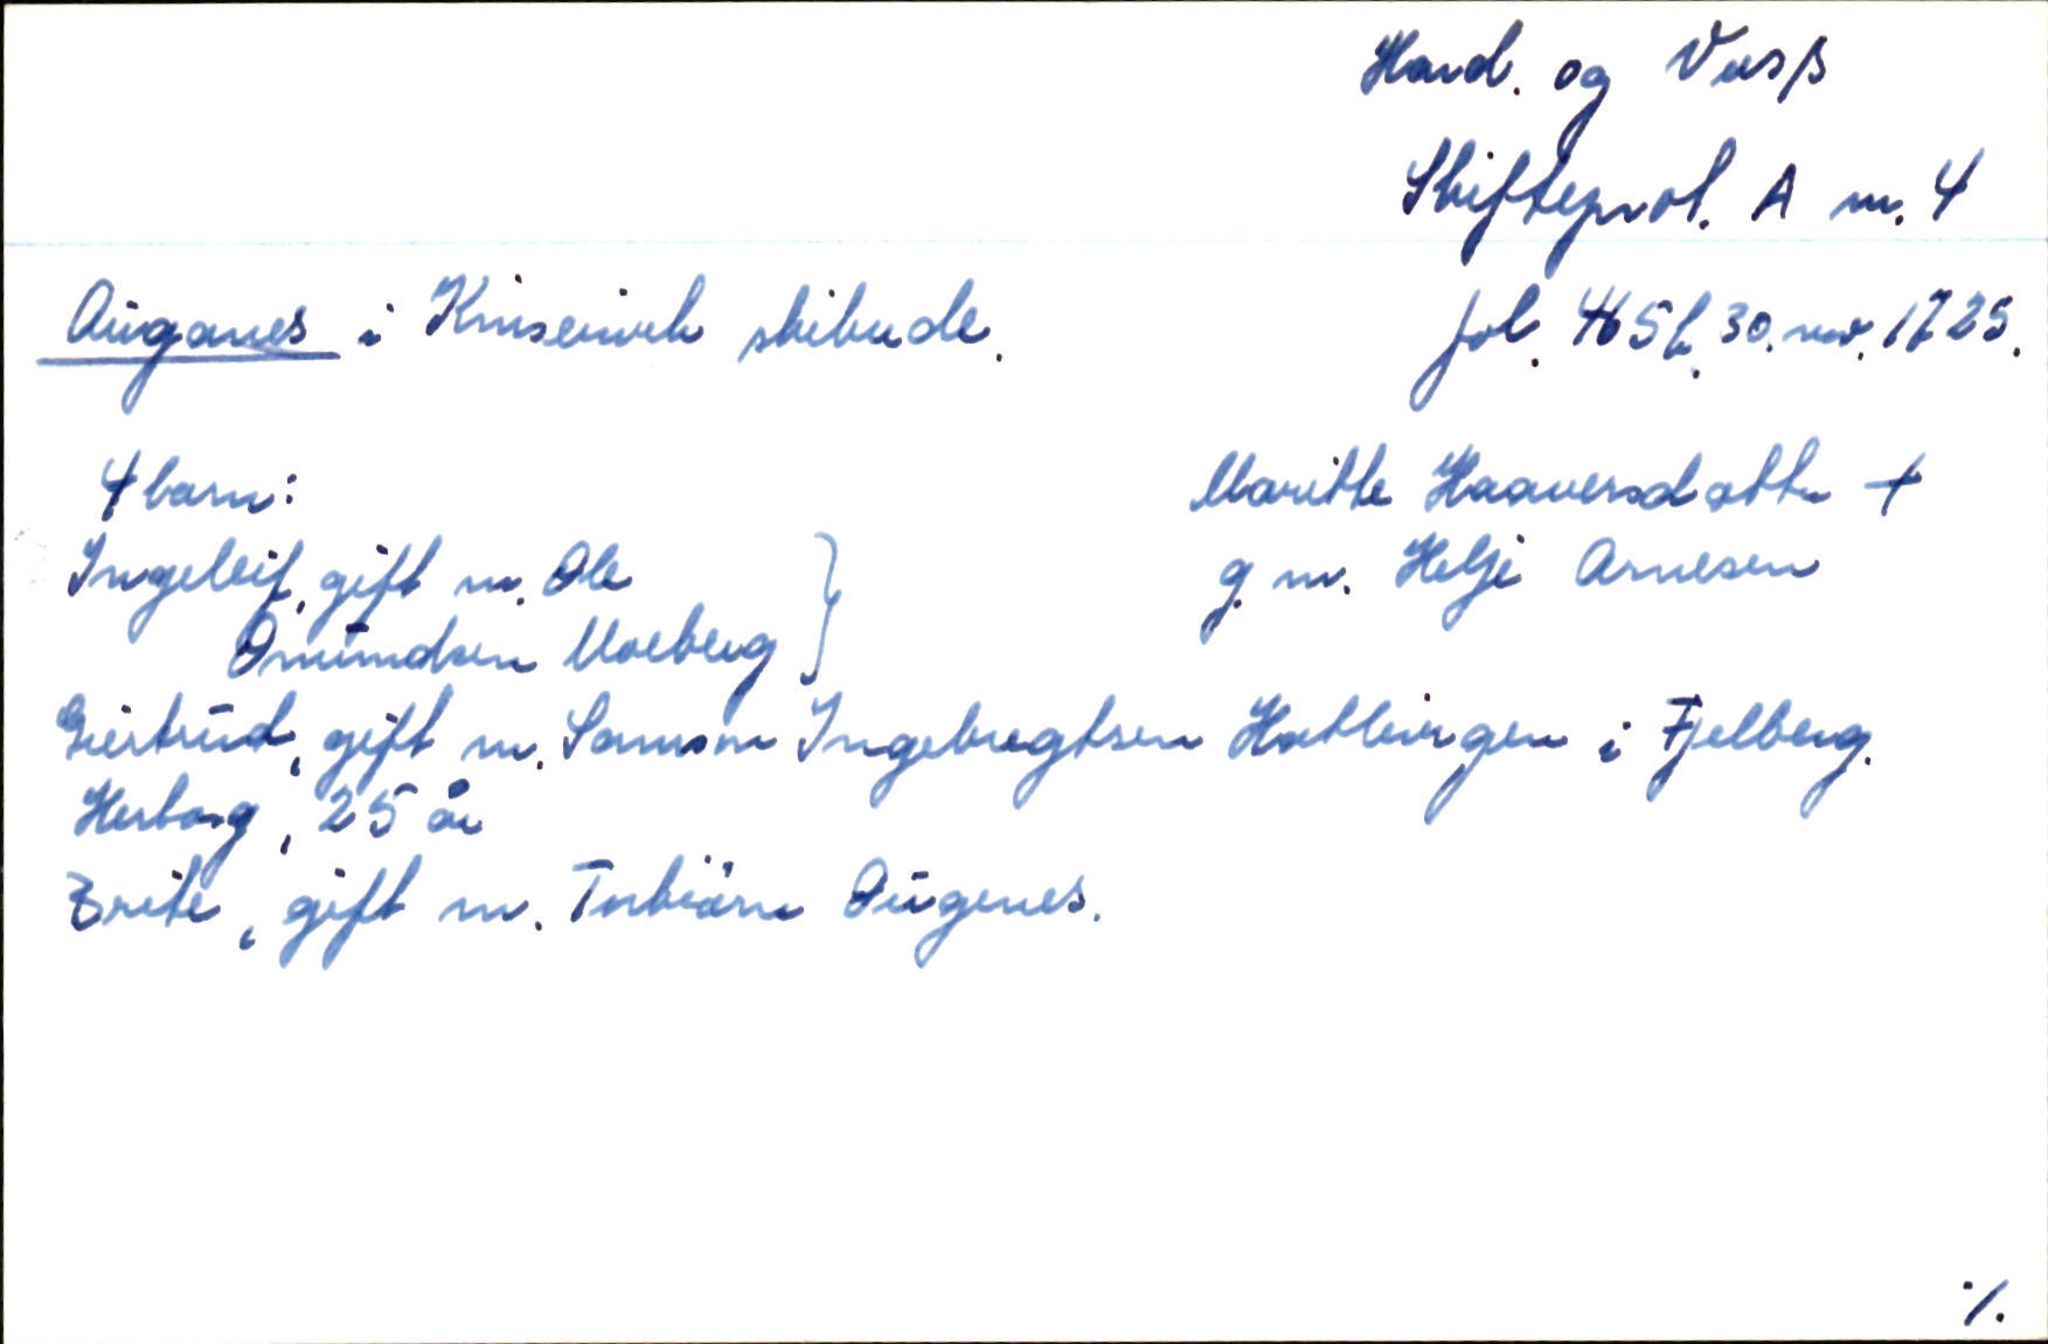 Hard. og Voss
Skifteprot. A nr. 4
Aúganes i Kinservik skibrede.
fol. 465b. 30. nov. 1725.
4 barn:
Maritte Haaversdatter +
g. m. Helje Arnesen
Ingeleif, gift m. Ole
Omúndsen Moeberg }
Giertrúd, gift m. Samson Ingebregtsen Hatlevigen i Fjelberg.
Herborg, 25 år
Brite, gift m. Torbiörn Oúgenes.
·/.